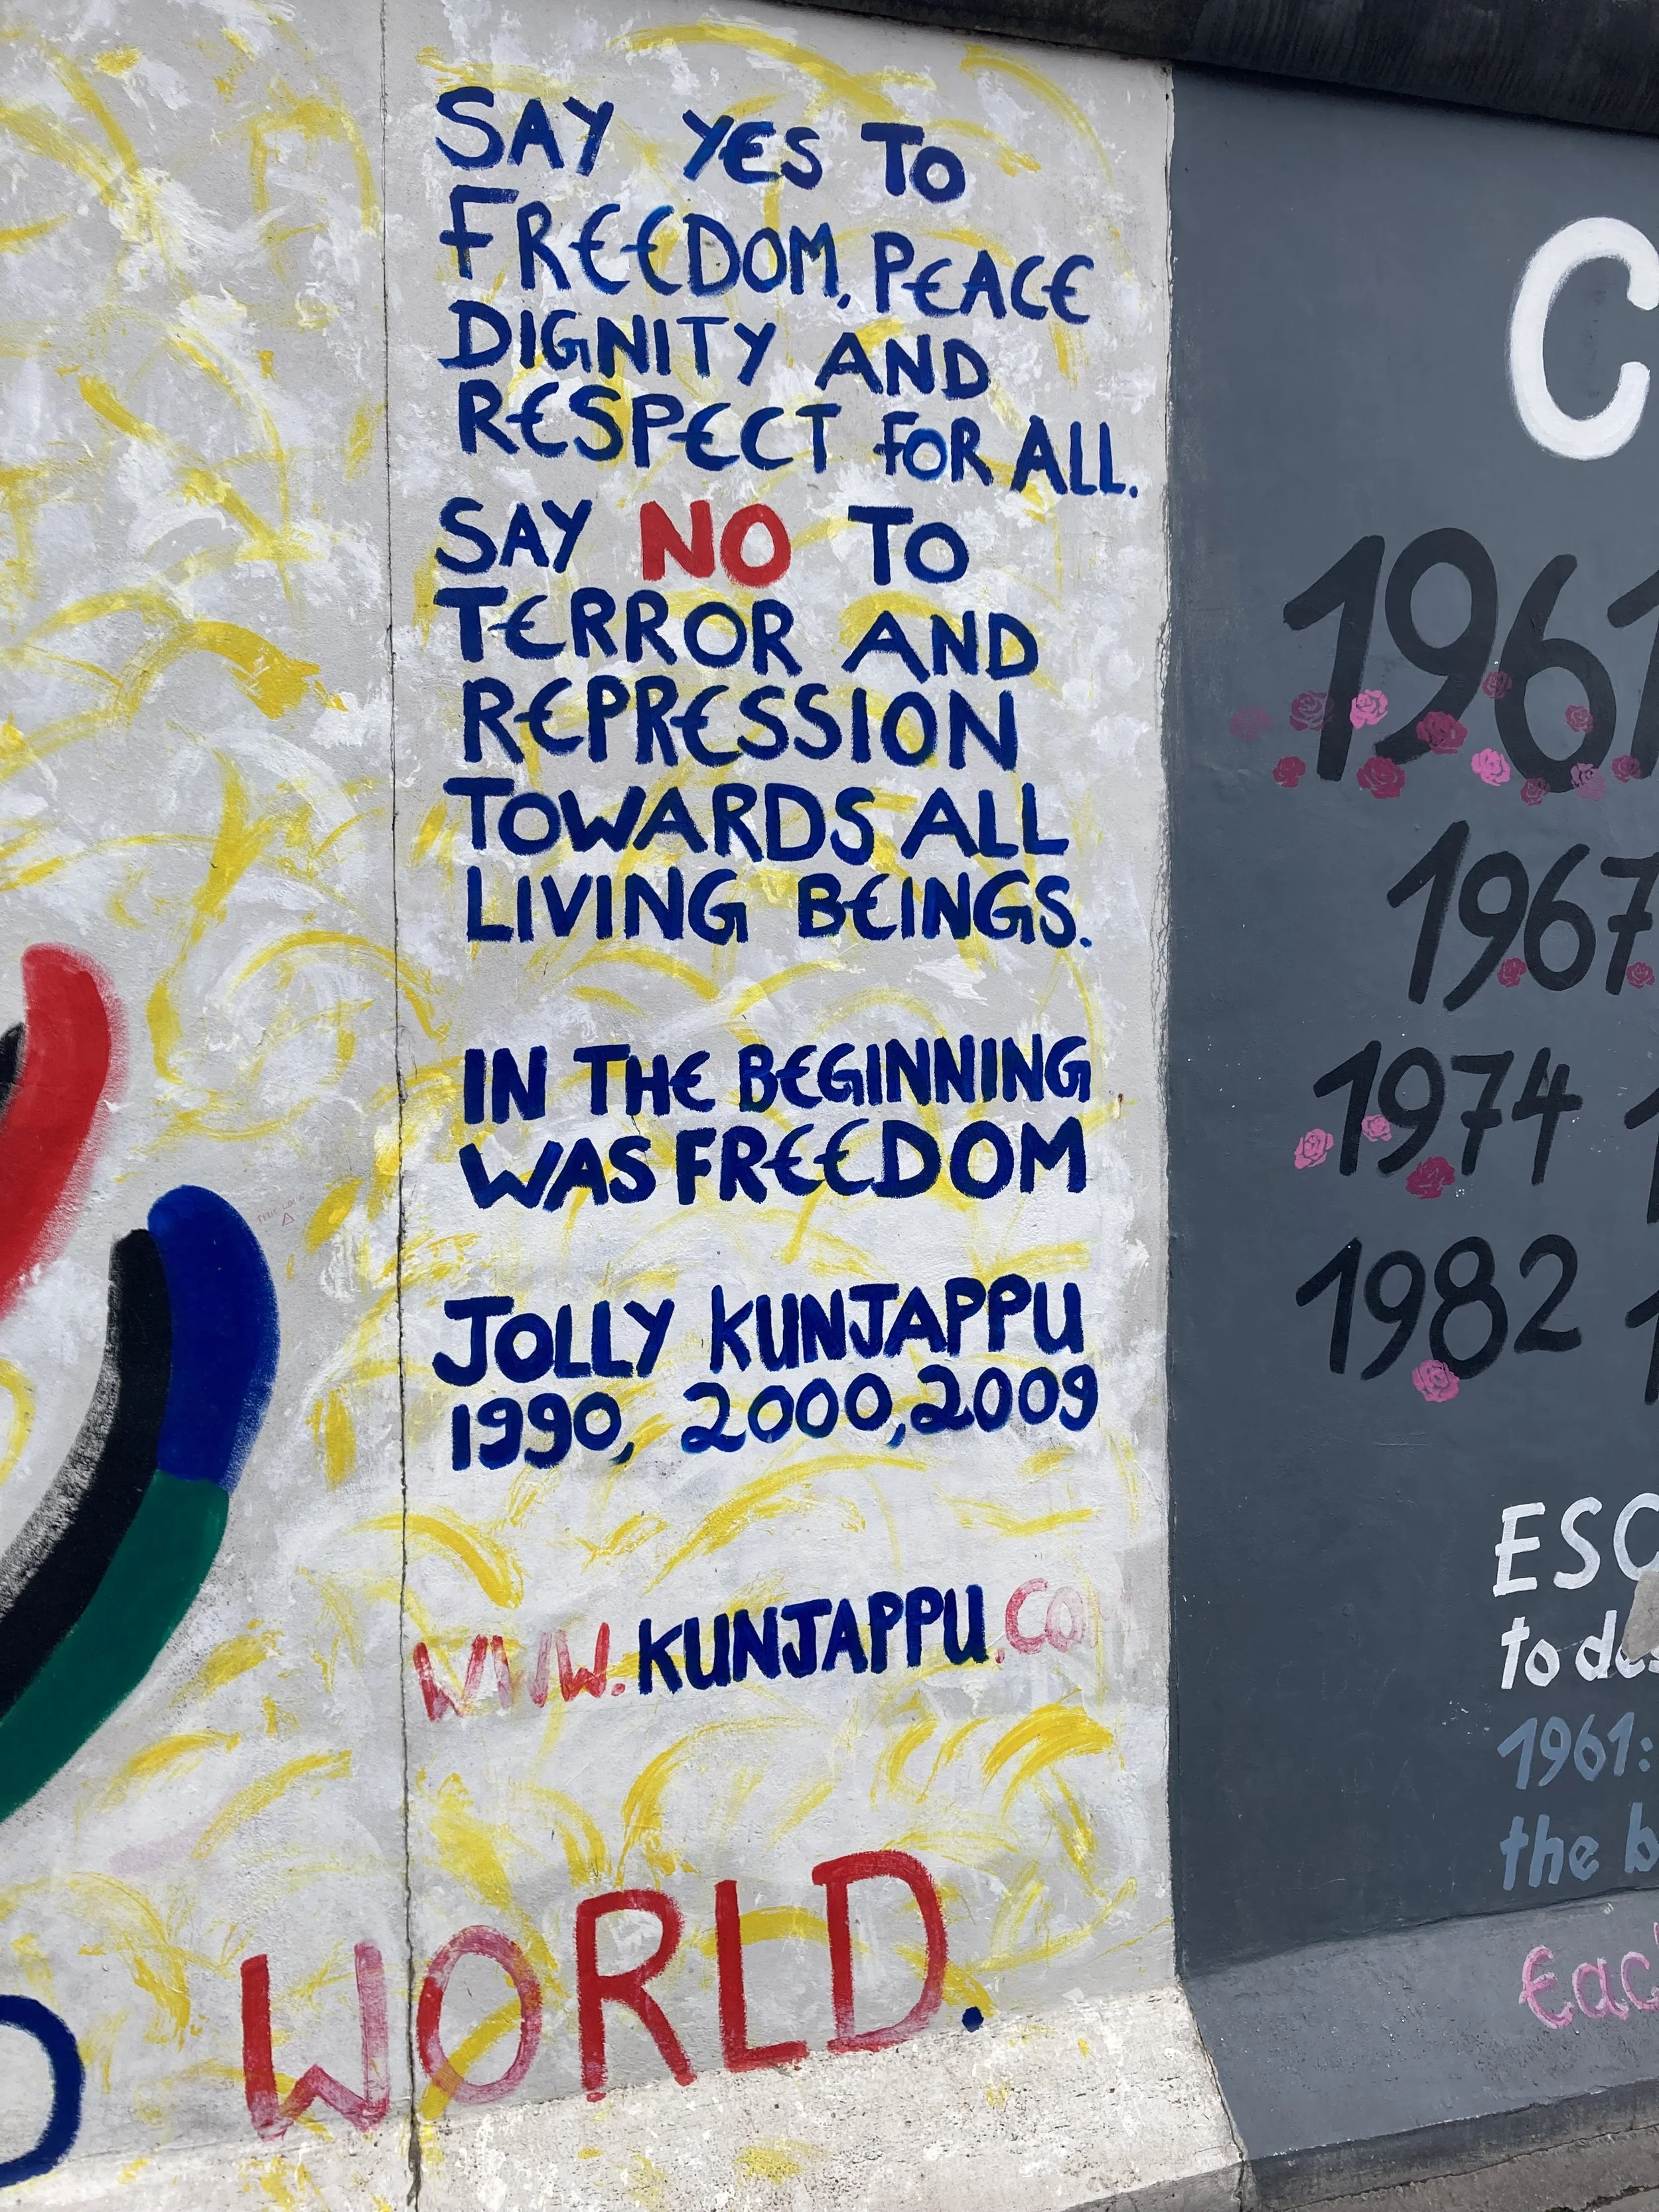 SAY YES TO
FREEDOM, PEACE
DIGNITY AND
RESPECT FOR ALL.
SAY NO TO
TERROR AND
REPRESSION
TOWARDS ALL
LIVING BEINGS.
IN THE BEGINNING
WAS FREEDOM
JOLLY KUNJAPPU
1990, 2000, 2009
WWW.KUNJAPPU.CO
WORLD.
C
1961
1967
1974
1982
ESC
to
1961:
the b